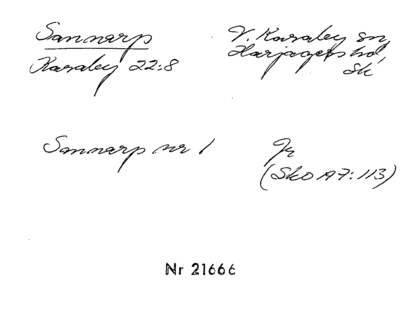 Sannarp
Karaby 22:8
V. Karaby sn,
Harjagers hd,
Sk
Sannarp nr 1
Jr
(Sko A7:113)
Nr 21666